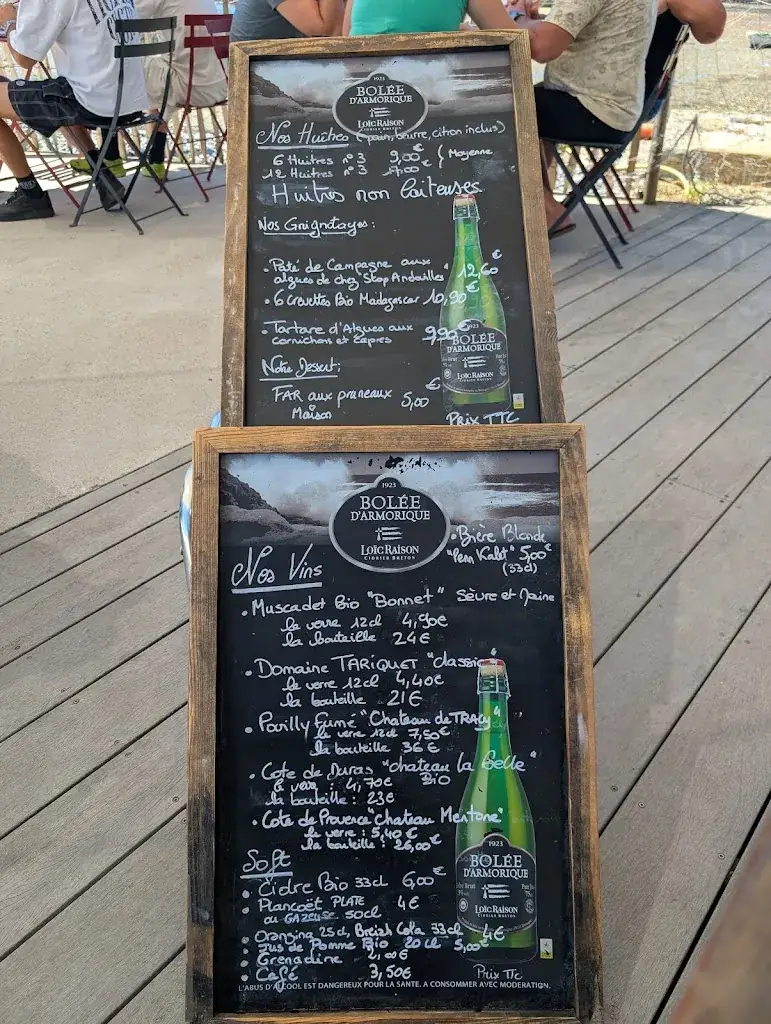 1923
BOLÉE
D'ARMORIQUE
LOÏC RAISON
CIDRIER BRETON
Nos Huîtres (pain, beurre, citron inclus)
6 Huitres n°3 9,00€ (Moyenne
12 Huitres n°3 17,00€
Huitres non laiteuses
Nos Grignotages :
• Pâté de Campagne aux
algues de chez Stop Andouilles" 12,60€
• 6 Crevettes Bio Madagascar 10,90€
• Tartare d'Algues aux 9,90€
cornichons et capres
Notre Dessert :
FAR aux pruneaux 5,00€
Maison
1923
BOLÉE
D'ARMORIQUE
LOÏC RAISON
Prix TTC
1923
BOLÉE
D'ARMORIQUE
LOÏC RAISON
CIDRIER BRETON
• Bière Blonde
"Penn Kalet" 5,00€
(33cl)
Nos Vins
• Muscadet Bio "Bonnet" Sèvre et Maine
le verre 12cl 4,90€
la bouteille 24€
• Domaine TARIQUET "classic"
le verre 12cl 4,40€
la bouteille 21€
• Pouilly Fumé "Chateau de TRACY"
le verre 12cl 7,50€
la bouteille 36€
• Cote de Duras "chateau la Selle"
Bio
le verre : 4,70€
la bouteille : 23€
• Cote de Provence "Chateau Mentone"
le verre : 5,40€
la bouteille : 26,00€
Soft
• Cidre Bio 33cl 6,00€
• Plancoët PLATE 4€
ou GAZEUSE 50cl
• Orangina 25cl, Breizh Cola 33cl 4€
• Jus de Pomme Bio 20cl 5,00€
• Grenadine 2,00€
• Café 3,50€
1923
BOLÉE
D'ARMORIQUE
LOÏC RAISON
CIDRIER BRETON
Prix TTC
L'ABUS D'ALCOOL EST DANGEREUX POUR LA SANTE. A CONSOMMER AVEC MODERATION.